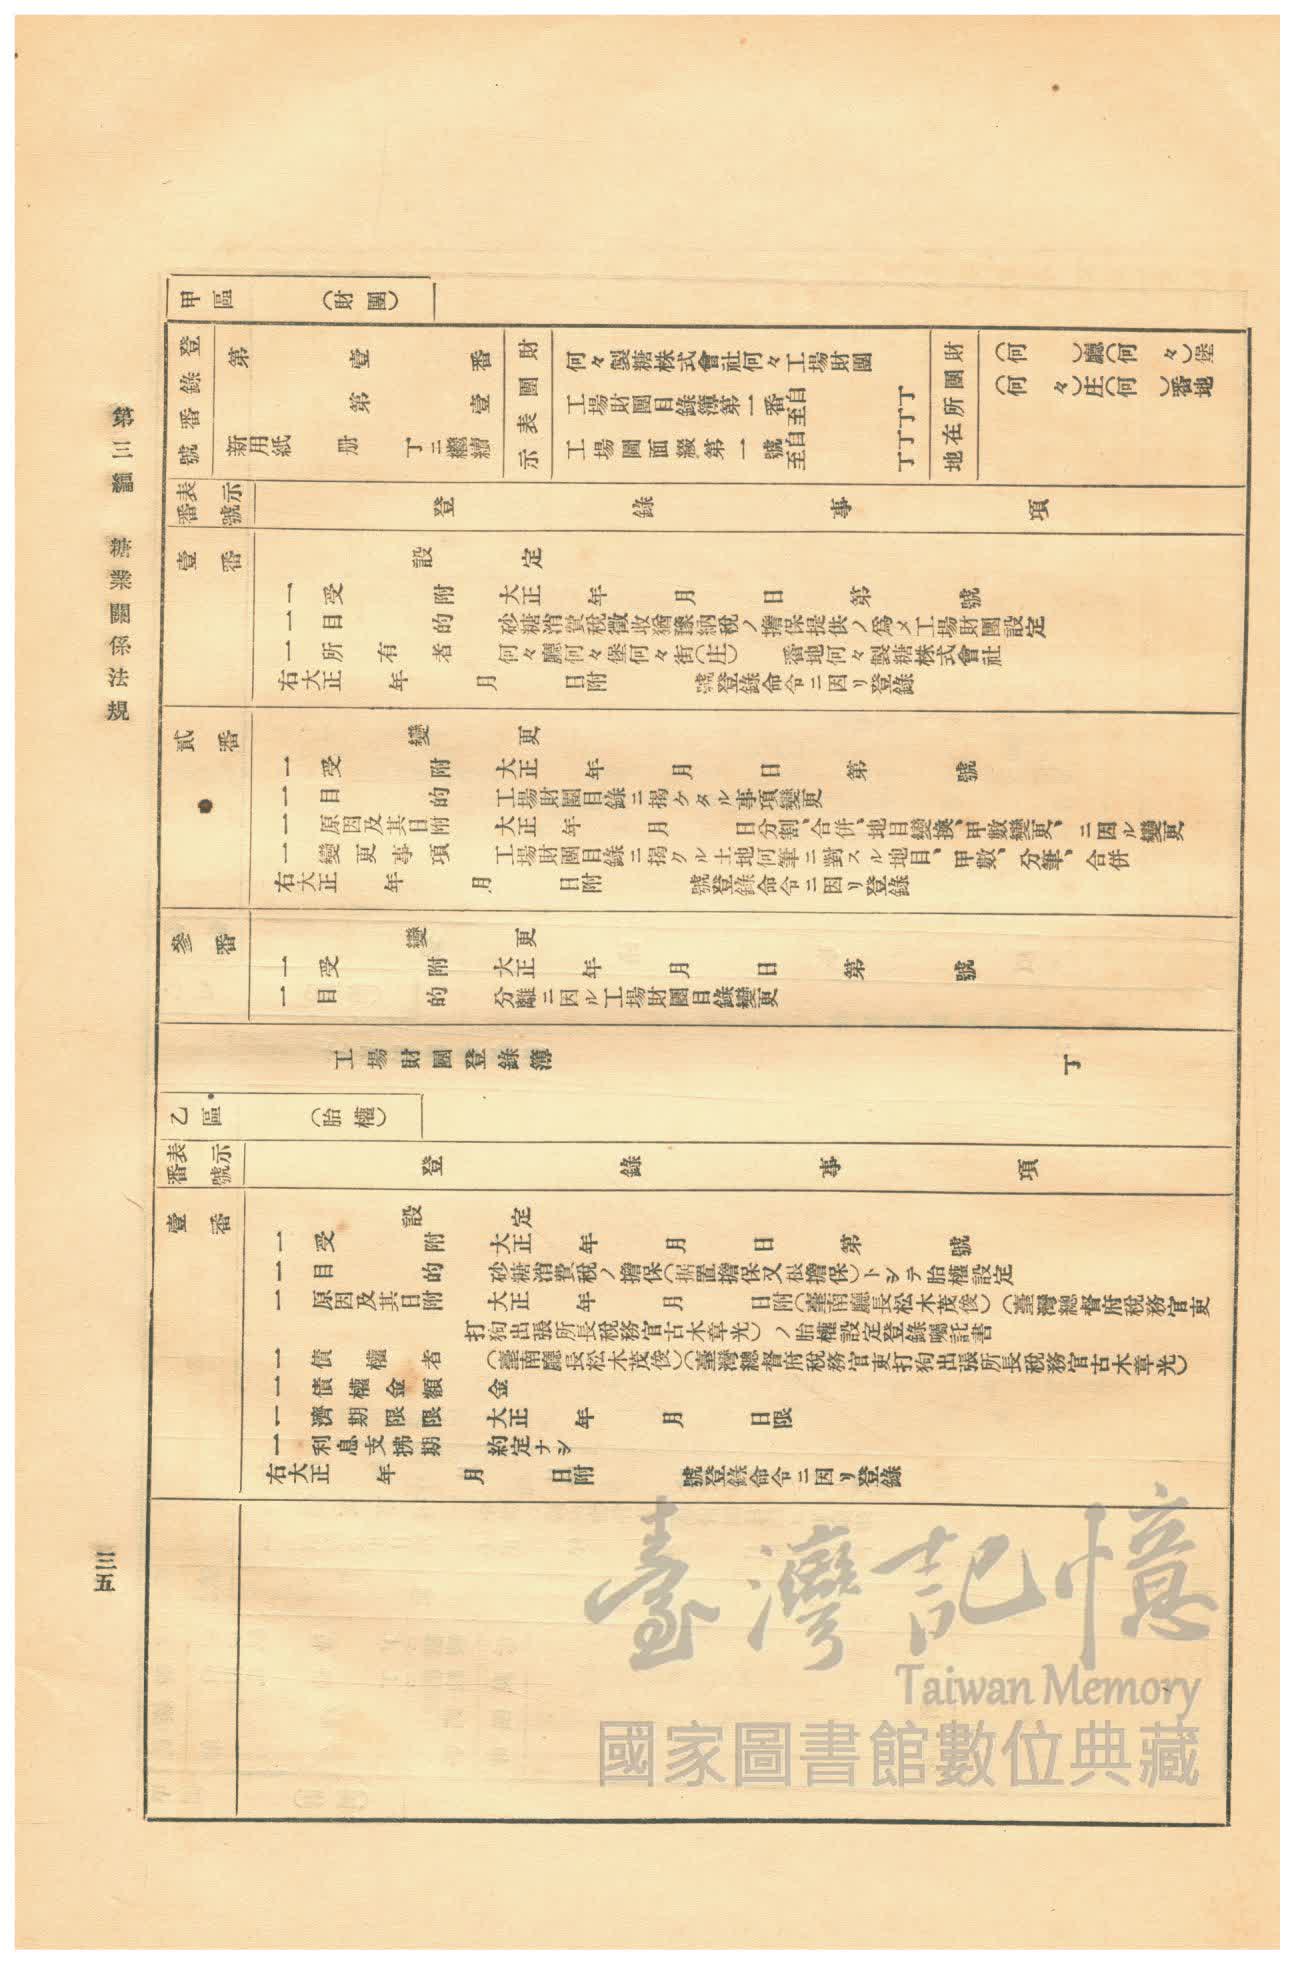 甲區 (財團)
登錄番號
第壹番
第壹
新用紙 册 丁ニ繼續
財團表示
何々製糖株式會社何々工場財團
工場財團目錄簿第一番自至 丁丁
工場圖面綴第一號自至 丁丁
財團所在地
(何々)廳(何々)堡
(何々)庄(何)番地
表示番號
登錄事項
壹番
設定
一受附 大正 年 月 日 第 號
一目的 砂糖消費稅徵收猶豫納稅ノ擔保提供ノ爲メ工場財團設定
一所有者 何々廳何々堡何々街(庄) 番地何々製糖株式會社
右大正 年 月 日附 號登錄命令ニ因リ登錄
貳番
變更
一受附 大正 年 月 日 第 號
一目的 工場財團目錄ニ揭ケタル事項變更
一原因及其日附 大正 年 月 日分割、合併、地目變換、甲數變更、ニ因ル變更
一變更事項 工場財團目錄ニ揭クル土地何筆ニ對スル地目、甲數、分筆、合併
右大正 年 月 日附 號登錄命令ニ因リ登錄
參番
變更
一受附 大正 年 月 日 第 號
一目的 分離ニ因ル工場財團目錄變更
工場財團登錄簿 丁
乙區 (胎權)
表示番號
登錄事項
壹番
設定
一受附 大正 年 月 日 第 號
一目的 砂糖消費稅ノ擔保(据置擔保又根擔保)トシテ胎權設定
一原因及其日附 大正 年 月 日附(臺南廳長松木茂俊)(臺灣總督府稅務官吏
打狗出張所長稅務官古木章光)ノ胎權設定登錄囑託書
一債權者 (臺南廳長松木茂俊)(臺灣總督府稅務官吏打狗出張所長稅務官古木章光)
一債權金額 金
一濟期限 大正 年 月 日限
一利息支拂期 約定ナシ
右大正 年 月 日附 號登錄命令ニ因リ登錄
臺灣記憶
Taiwan Memory
國家圖書館數位典藏